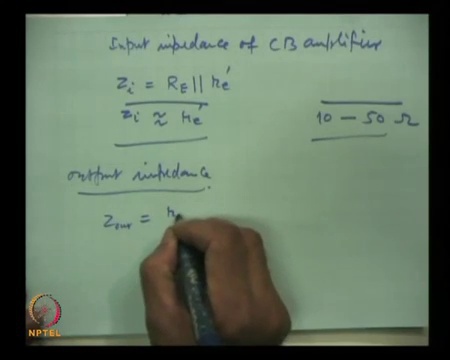 Input impedance of CB amplifier
Zi = RE || re'
Zi ≈ re'
10 — 50 Ω
output impedance
Zout = r
NPTEL